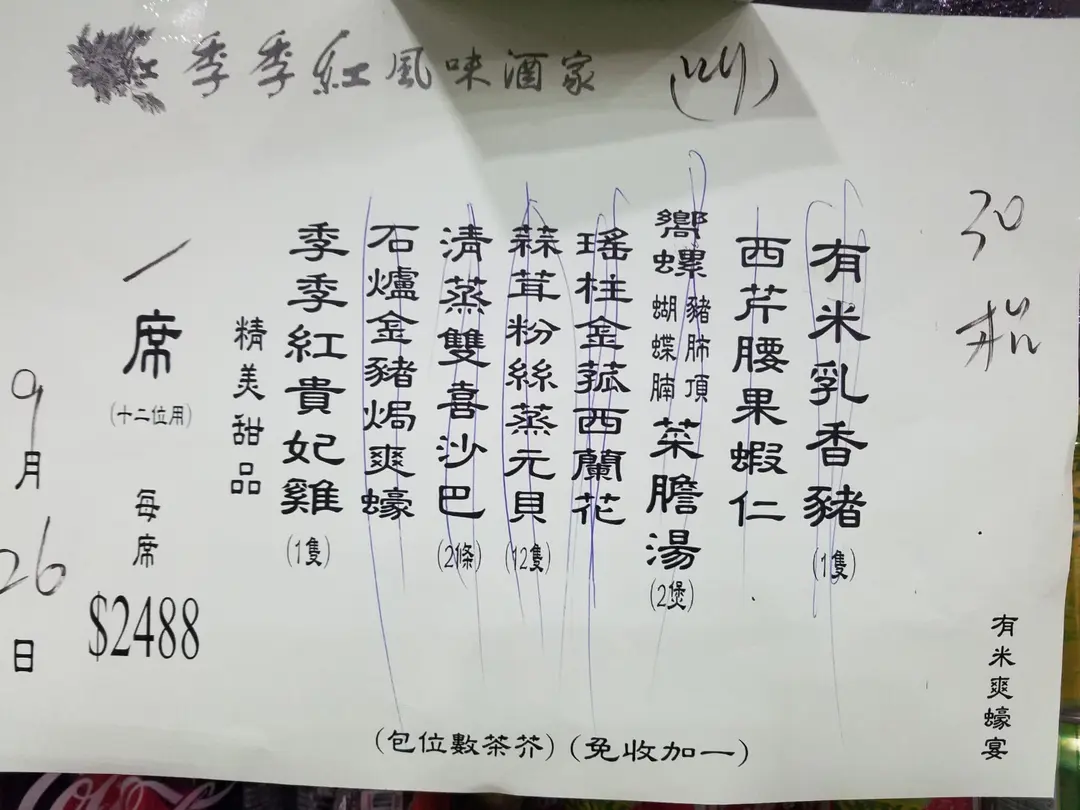 紅 季季紅風味酒家
30
有米爽蠔宴
有米乳香豬(1隻)
西芹腰果蝦仁
嚮螺豬肺頂蝴蝶腩菜膽湯(2煲)
瑤柱金菰西蘭花
蒜茸粉絲蒸元貝(12隻)
清蒸雙喜沙巴(2條)
石爐金豬焗爽蠔
季季紅貴妃雞(1隻)
精美甜品
一席(十二位用)每席$2488
9月26日
(包位數茶芥)(免收加一)
Coca